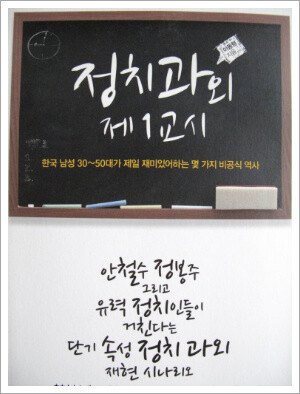 이동형 지음
정치과외
제1교시
한국 남성 30~50대가 제일 재미있어하는 몇 가지 비공식 역사
안철수 정봉주
그리고
유력 정치인들이
거친다는
단기 속성 정치 과외
재현 시나리오